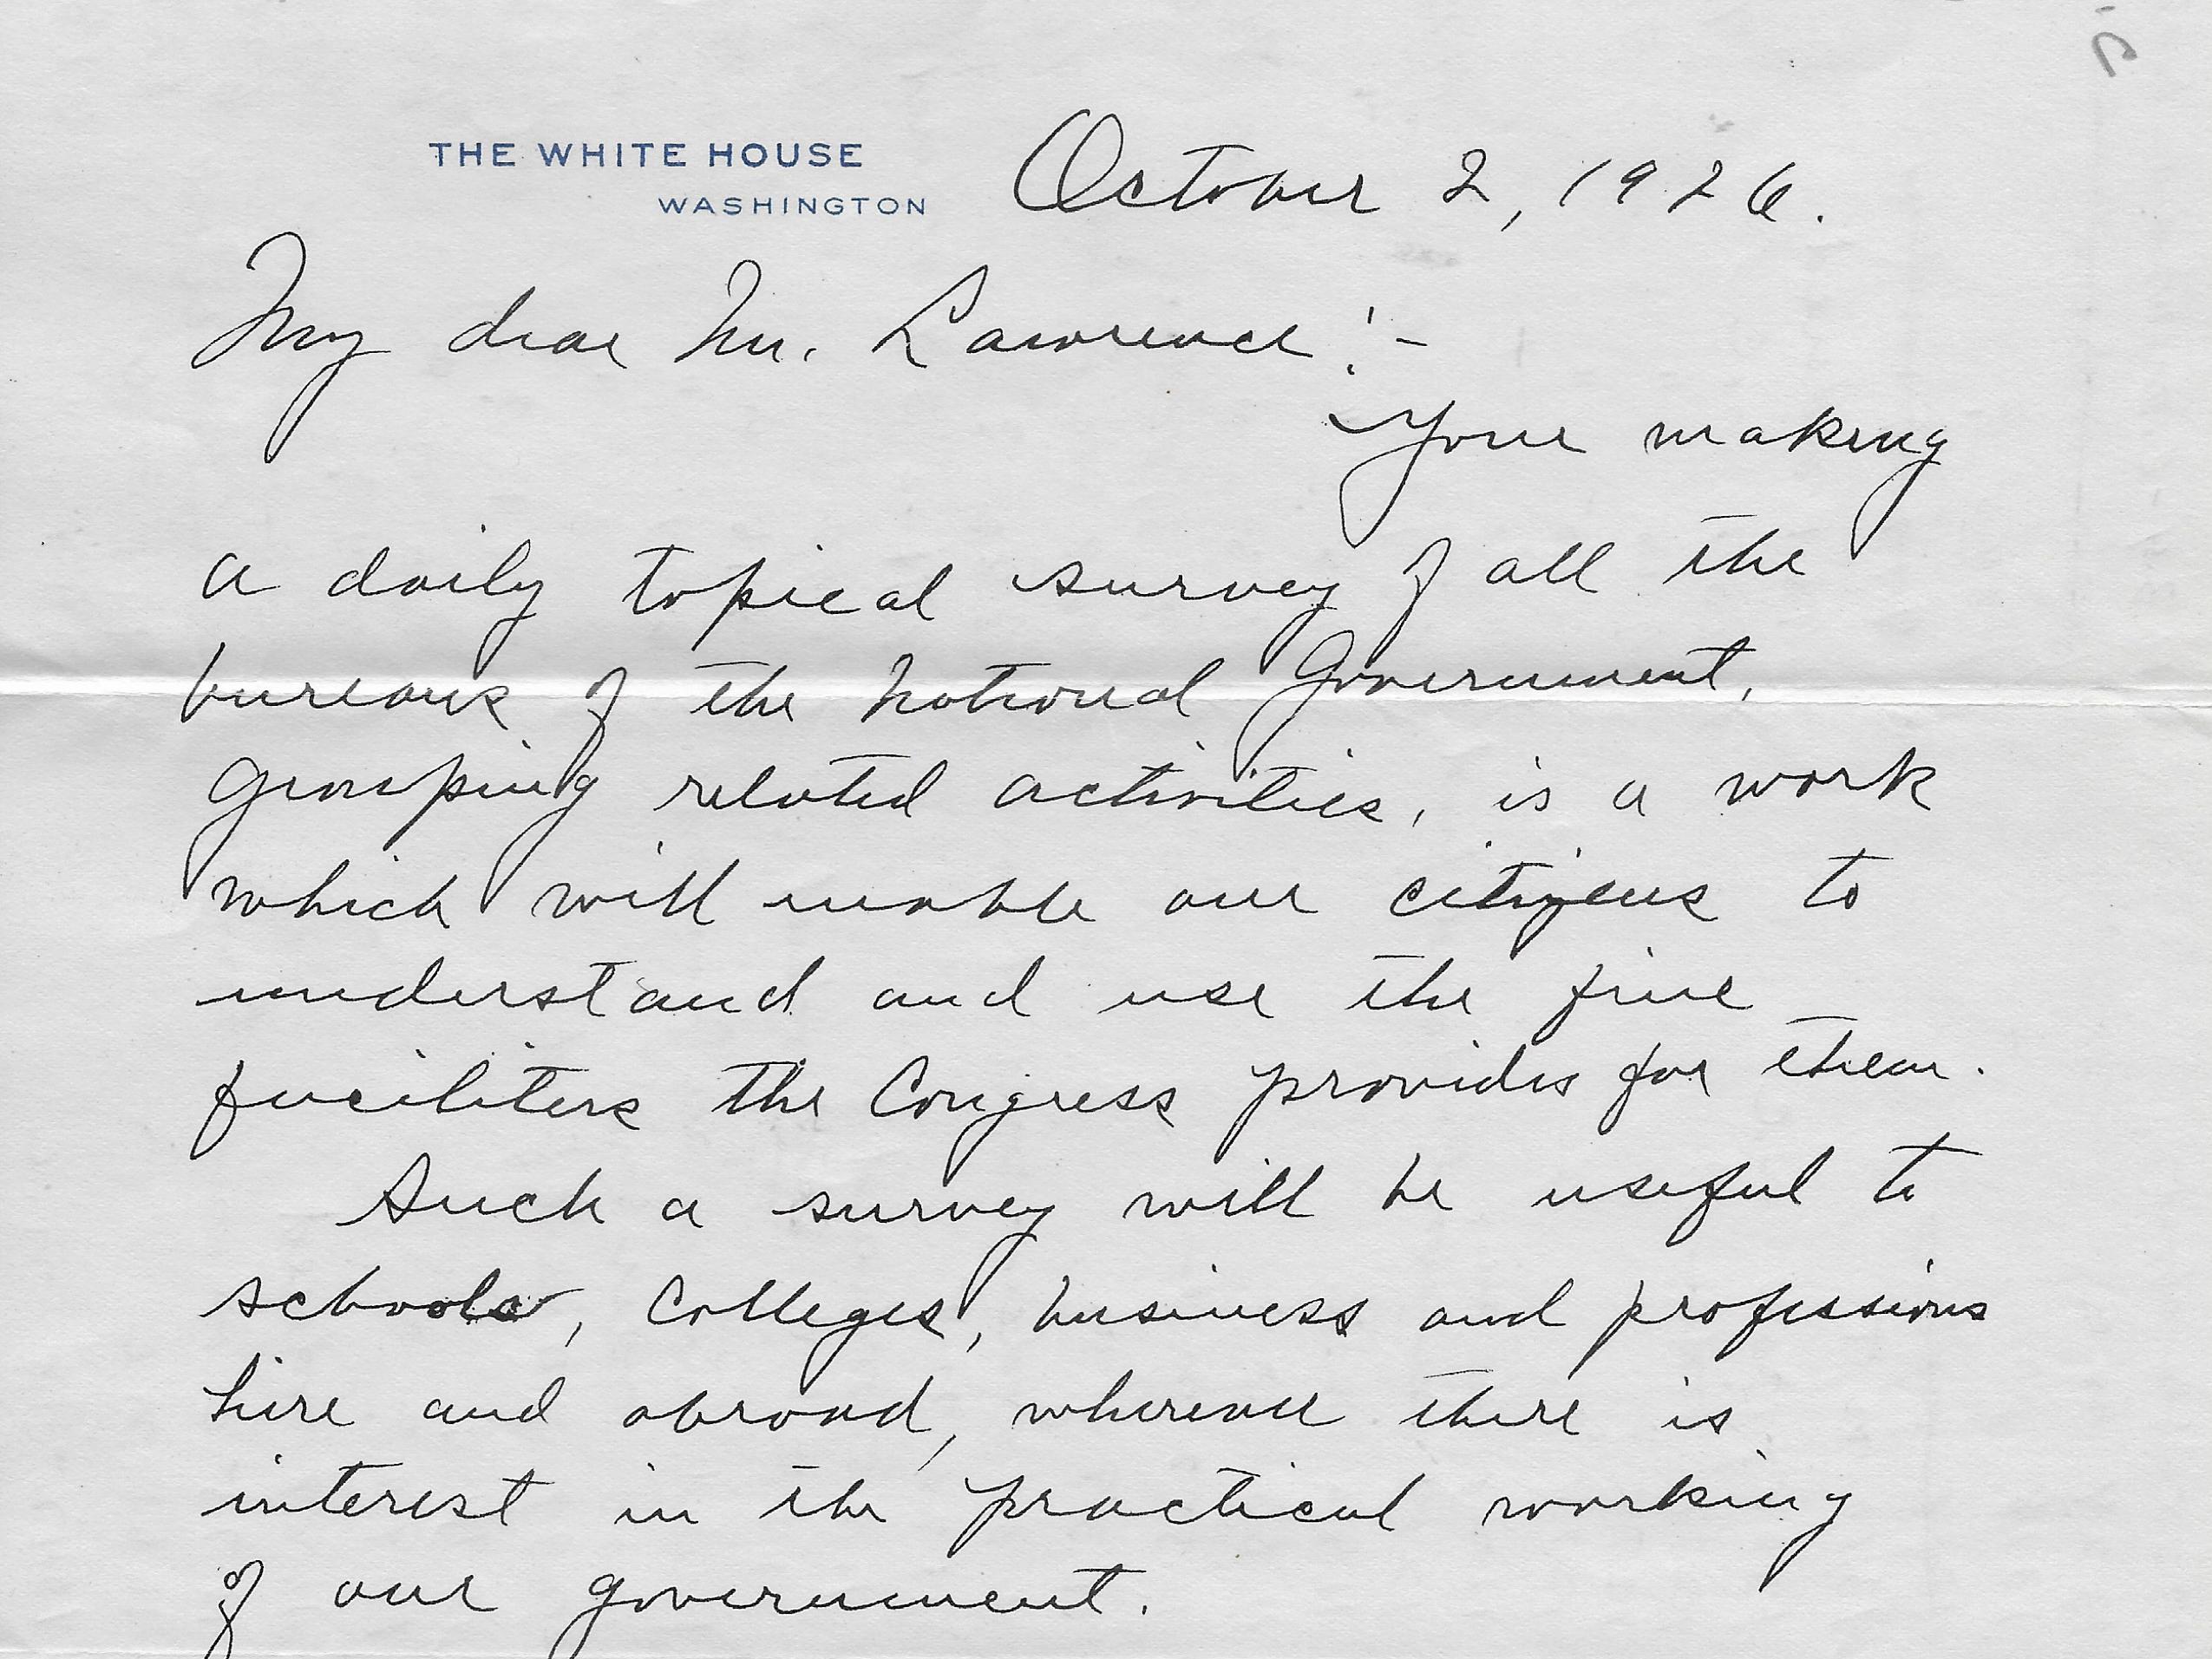 THE WHITE HOUSE
WASHINGTON
October 2, 1926.
My dear Mr. Lawrence:-
Your making
a daily topical survey of all the
bureaus of the National Government,
grouping related activities, is a work
which will enable our citizens to
understand and use the fine
facilities the Congress provides for them.
Such a survey will be useful to
schools, colleges, business and professions
here and abroad, wherever there is
interest in the practical working
of our government.